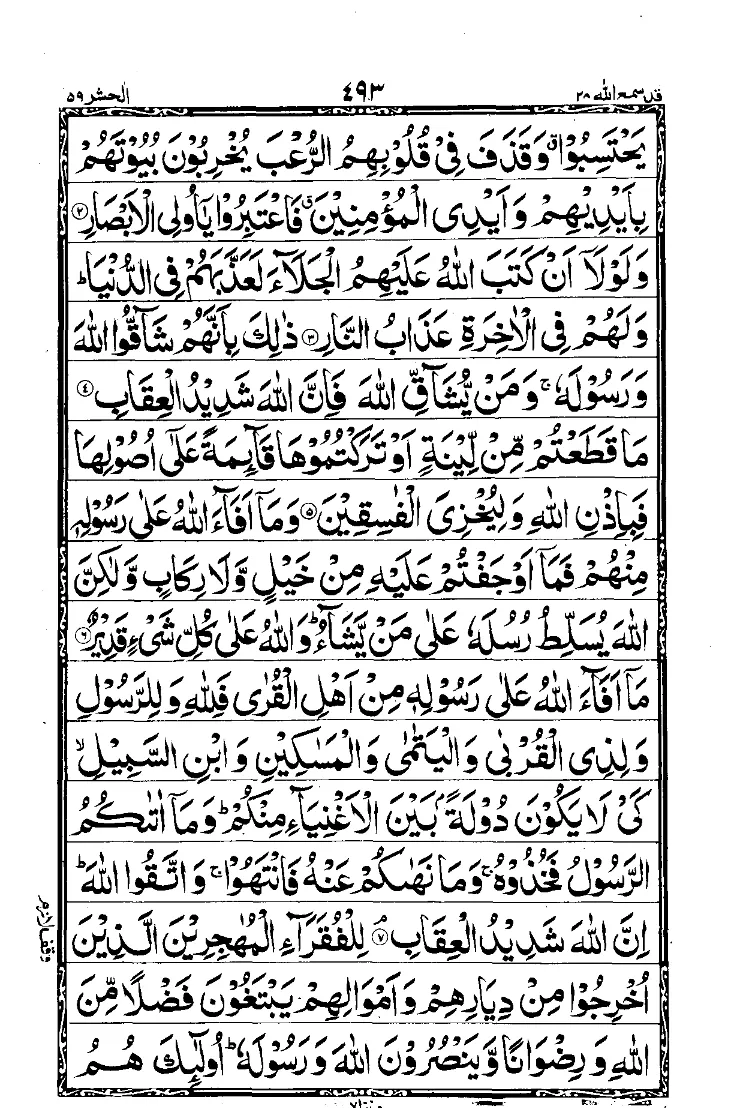 قد سمع الله ٢٨ ٤٩٣ الحشر ٥٩
يَحْتَسِبُوْا ۗ وَقَذَفَ فِيْ قُلُوْبِهِمُ الرُّعْبَ يُخْرِبُوْنَ بُيُوْتَهُمْ
بِاَيْدِيْهِمْ وَاَيْدِى الْمُؤْمِنِيْنَ ۗ فَاعْتَبِرُوْا يٰٓاُولِى الْاَبْصَارِ ﴿٢﴾
وَلَوْلَآ اَنْ كَتَبَ اللّٰهُ عَلَيْهِمُ الْجَلَآءَ لَعَذَّبَهُمْ فِى الدُّنْيَا ؕ
وَلَهُمْ فِى الْاٰخِرَةِ عَذَابُ النَّارِ ﴿٣﴾ ذٰلِكَ بِاَنَّهُمْ شَآقُّوا اللّٰهَ
وَرَسُوْلَهٗ ۚ وَمَنْ يُّشَآقِّ اللّٰهَ فَاِنَّ اللّٰهَ شَدِيْدُ الْعِقَابِ ﴿٤﴾
مَا قَطَعْتُمْ مِّنْ لِّيْنَةٍ اَوْ تَرَكْتُمُوْهَا قَآئِمَةً عَلٰٓى اُصُوْلِهَا
فَبِاِذْنِ اللّٰهِ وَلِيُخْزِىَ الْفٰسِقِيْنَ ﴿٥﴾ وَمَآ اَفَآءَ اللّٰهُ عَلٰى رَسُوْلِهٖ
مِنْهُمْ فَمَآ اَوْجَفْتُمْ عَلَيْهِ مِنْ خَيْلٍ وَّلَا رِكَابٍ وَّلٰكِنَّ
اللّٰهَ يُسَلِّطُ رُسُلَهٗ عَلٰى مَنْ يَّشَآءُ ؕ وَاللّٰهُ عَلٰى كُلِّ شَىْءٍ قَدِيْرٌ ﴿٦﴾
مَآ اَفَآءَ اللّٰهُ عَلٰى رَسُوْلِهٖ مِنْ اَهْلِ الْقُرٰى فَلِلّٰهِ وَلِلرَّسُوْلِ
وَلِذِى الْقُرْبٰى وَالْيَتٰمٰى وَالْمَسٰكِيْنِ وَابْنِ السَّبِيْلِ ۙ
كَىْ لَا يَكُوْنَ دُوْلَةً ۢ بَيْنَ الْاَغْنِيَآءِ مِنْكُمْ ؕ وَمَآ اٰتٰىكُمُ
الرَّسُوْلُ فَخُذُوْهُ ۚ وَمَا نَهٰىكُمْ عَنْهُ فَانْتَهُوْا ۚ وَاتَّقُوا اللّٰهَ ؕ
اِنَّ اللّٰهَ شَدِيْدُ الْعِقَابِ ۘ ﴿٧﴾ لِلْفُقَرَآءِ الْمُهٰجِرِيْنَ الَّذِيْنَ
وقف لازم
اُخْرِجُوْا مِنْ دِيَارِهِمْ وَاَمْوَالِهِمْ يَبْتَغُوْنَ فَضْلًا مِّنَ
اللّٰهِ وَرِضْوَانًا وَّيَنْصُرُوْنَ اللّٰهَ وَرَسُوْلَهٗ ؕ اُولٰٓئِكَ هُمُ